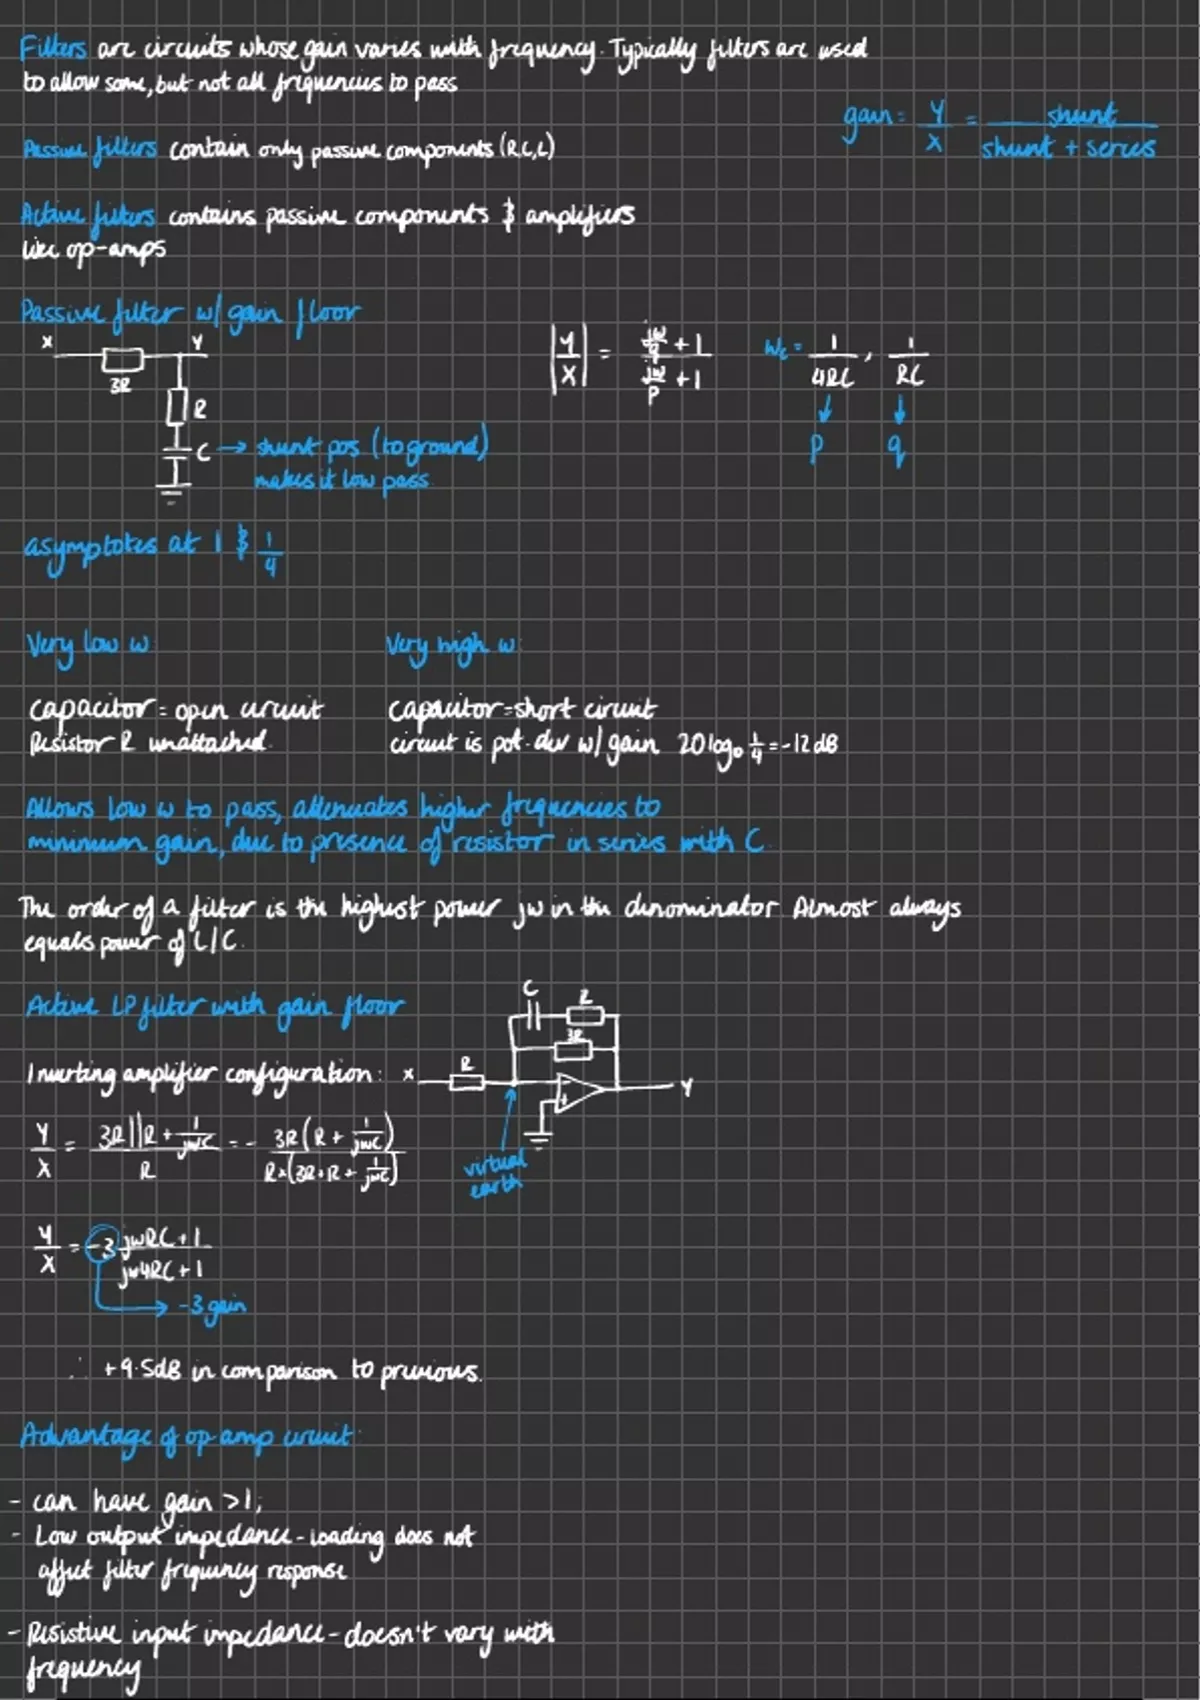 Filters are circuits whose gain varies with frequency. Typically filters are used
to allow some, but not all frequencies to pass
gain = Y/X = shunt/(shunt + series)
Passive filters contain only passive components (R,C,L)
Active filters contains passive components & amplifiers
like op-amps
Passive filter w/ gain floor
X Y
3R
R
C → shunt pos (to ground)
makes it low pass
|Y/X| = (jw/q + 1)/(jw/p + 1)
Wc = 1/4RC, 1/RC
↓ ↓
p q
asymptotes at 1 & 1/4
Very low w:
capacitor = open circuit
Resistor R unattached.
Very high w:
capacitor = short circuit
circuit is pot. div w/ gain 20log₁₀ 1/4 = -12dB
Allows low w to pass, attenuates higher frequencies to
minimum gain, due to presence of resistor in series with C.
The order of a filter is the highest power jw in the denominator Almost always
equals power of L/C.
Active LP filter with gain floor
Inverting amplifier configuration: X
R
C R
3R
-
+
Y
virtual
earth
Y/X = (3R||R + 1/jwC)/R = - 3R(R + 1/jwC)/(R×(3R+R+ 1/jwC))
Y/X = -3 (jwRC + 1)/(jw4RC + 1)
→ -3 gain
∴ +9.5dB in comparison to previous.
Advantage of op amp circuit:
- can have gain >1;
- Low output impedance - loading does not
affect filter frequency response
- Resistive input impedance - doesn't vary with
frequency